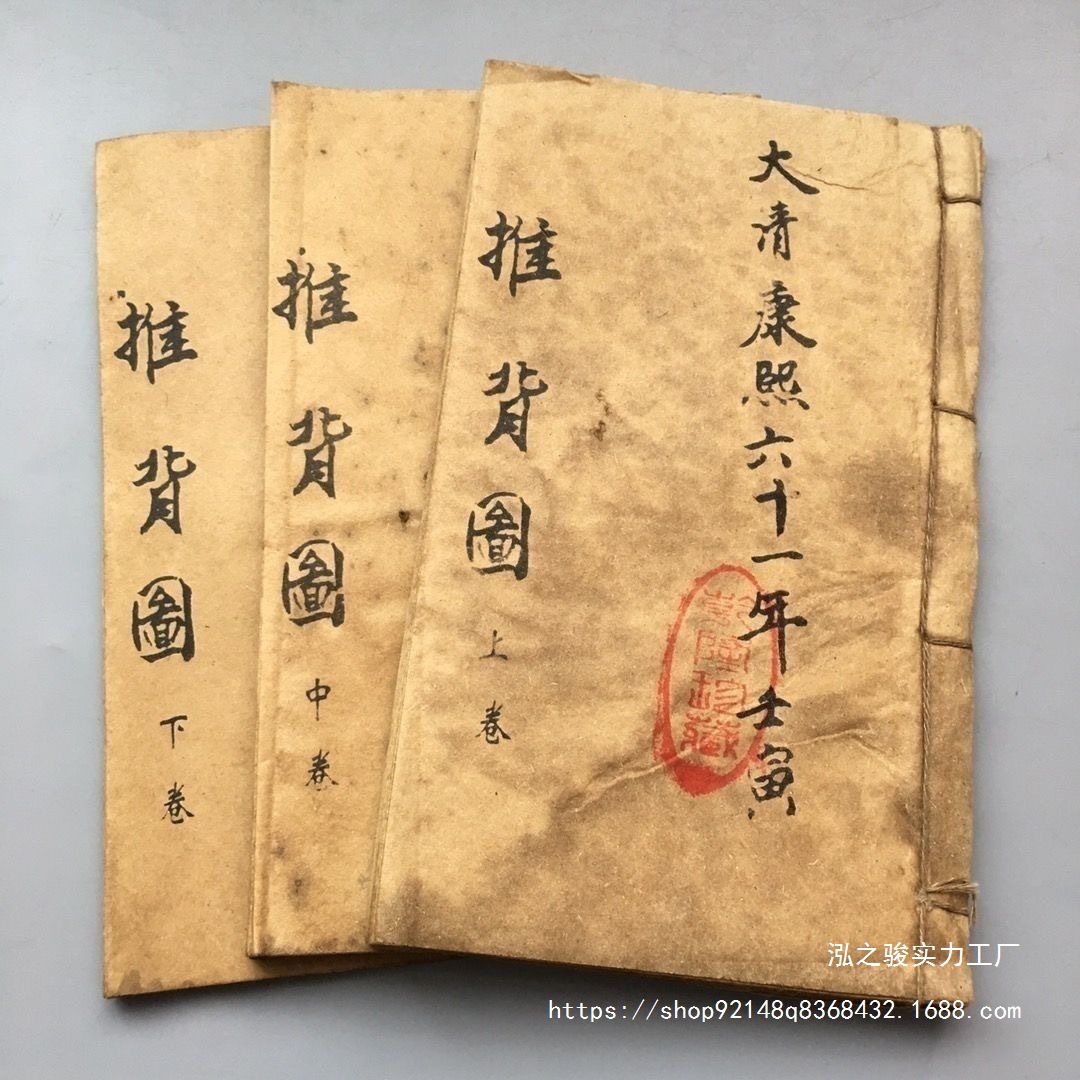 大清康熙六十一年壬寅
推背圖
上卷
推背圖
中卷
推背圖
下卷
泓之骏实力工厂
https://shop92148q8368432.1688.com